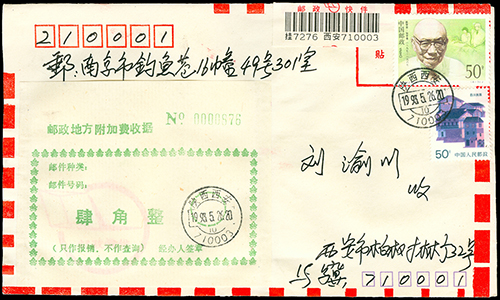 210001
邮政快件
挂7276 西安710003
贴
中国邮政
50分
邮:南京市钓鱼巷16幢49号301室
陕西西安
1993.5.26.20
10
710003
50分
中国人民邮政
邮政地方附加费收据
No 0000576
邮件种类:
邮件号码:
肆角整
(只作报销、不作查询) 经办人签章
陕西西安
1993.5.26.20
10
710003
刘渝川
收
西安市柏树林32号
710001